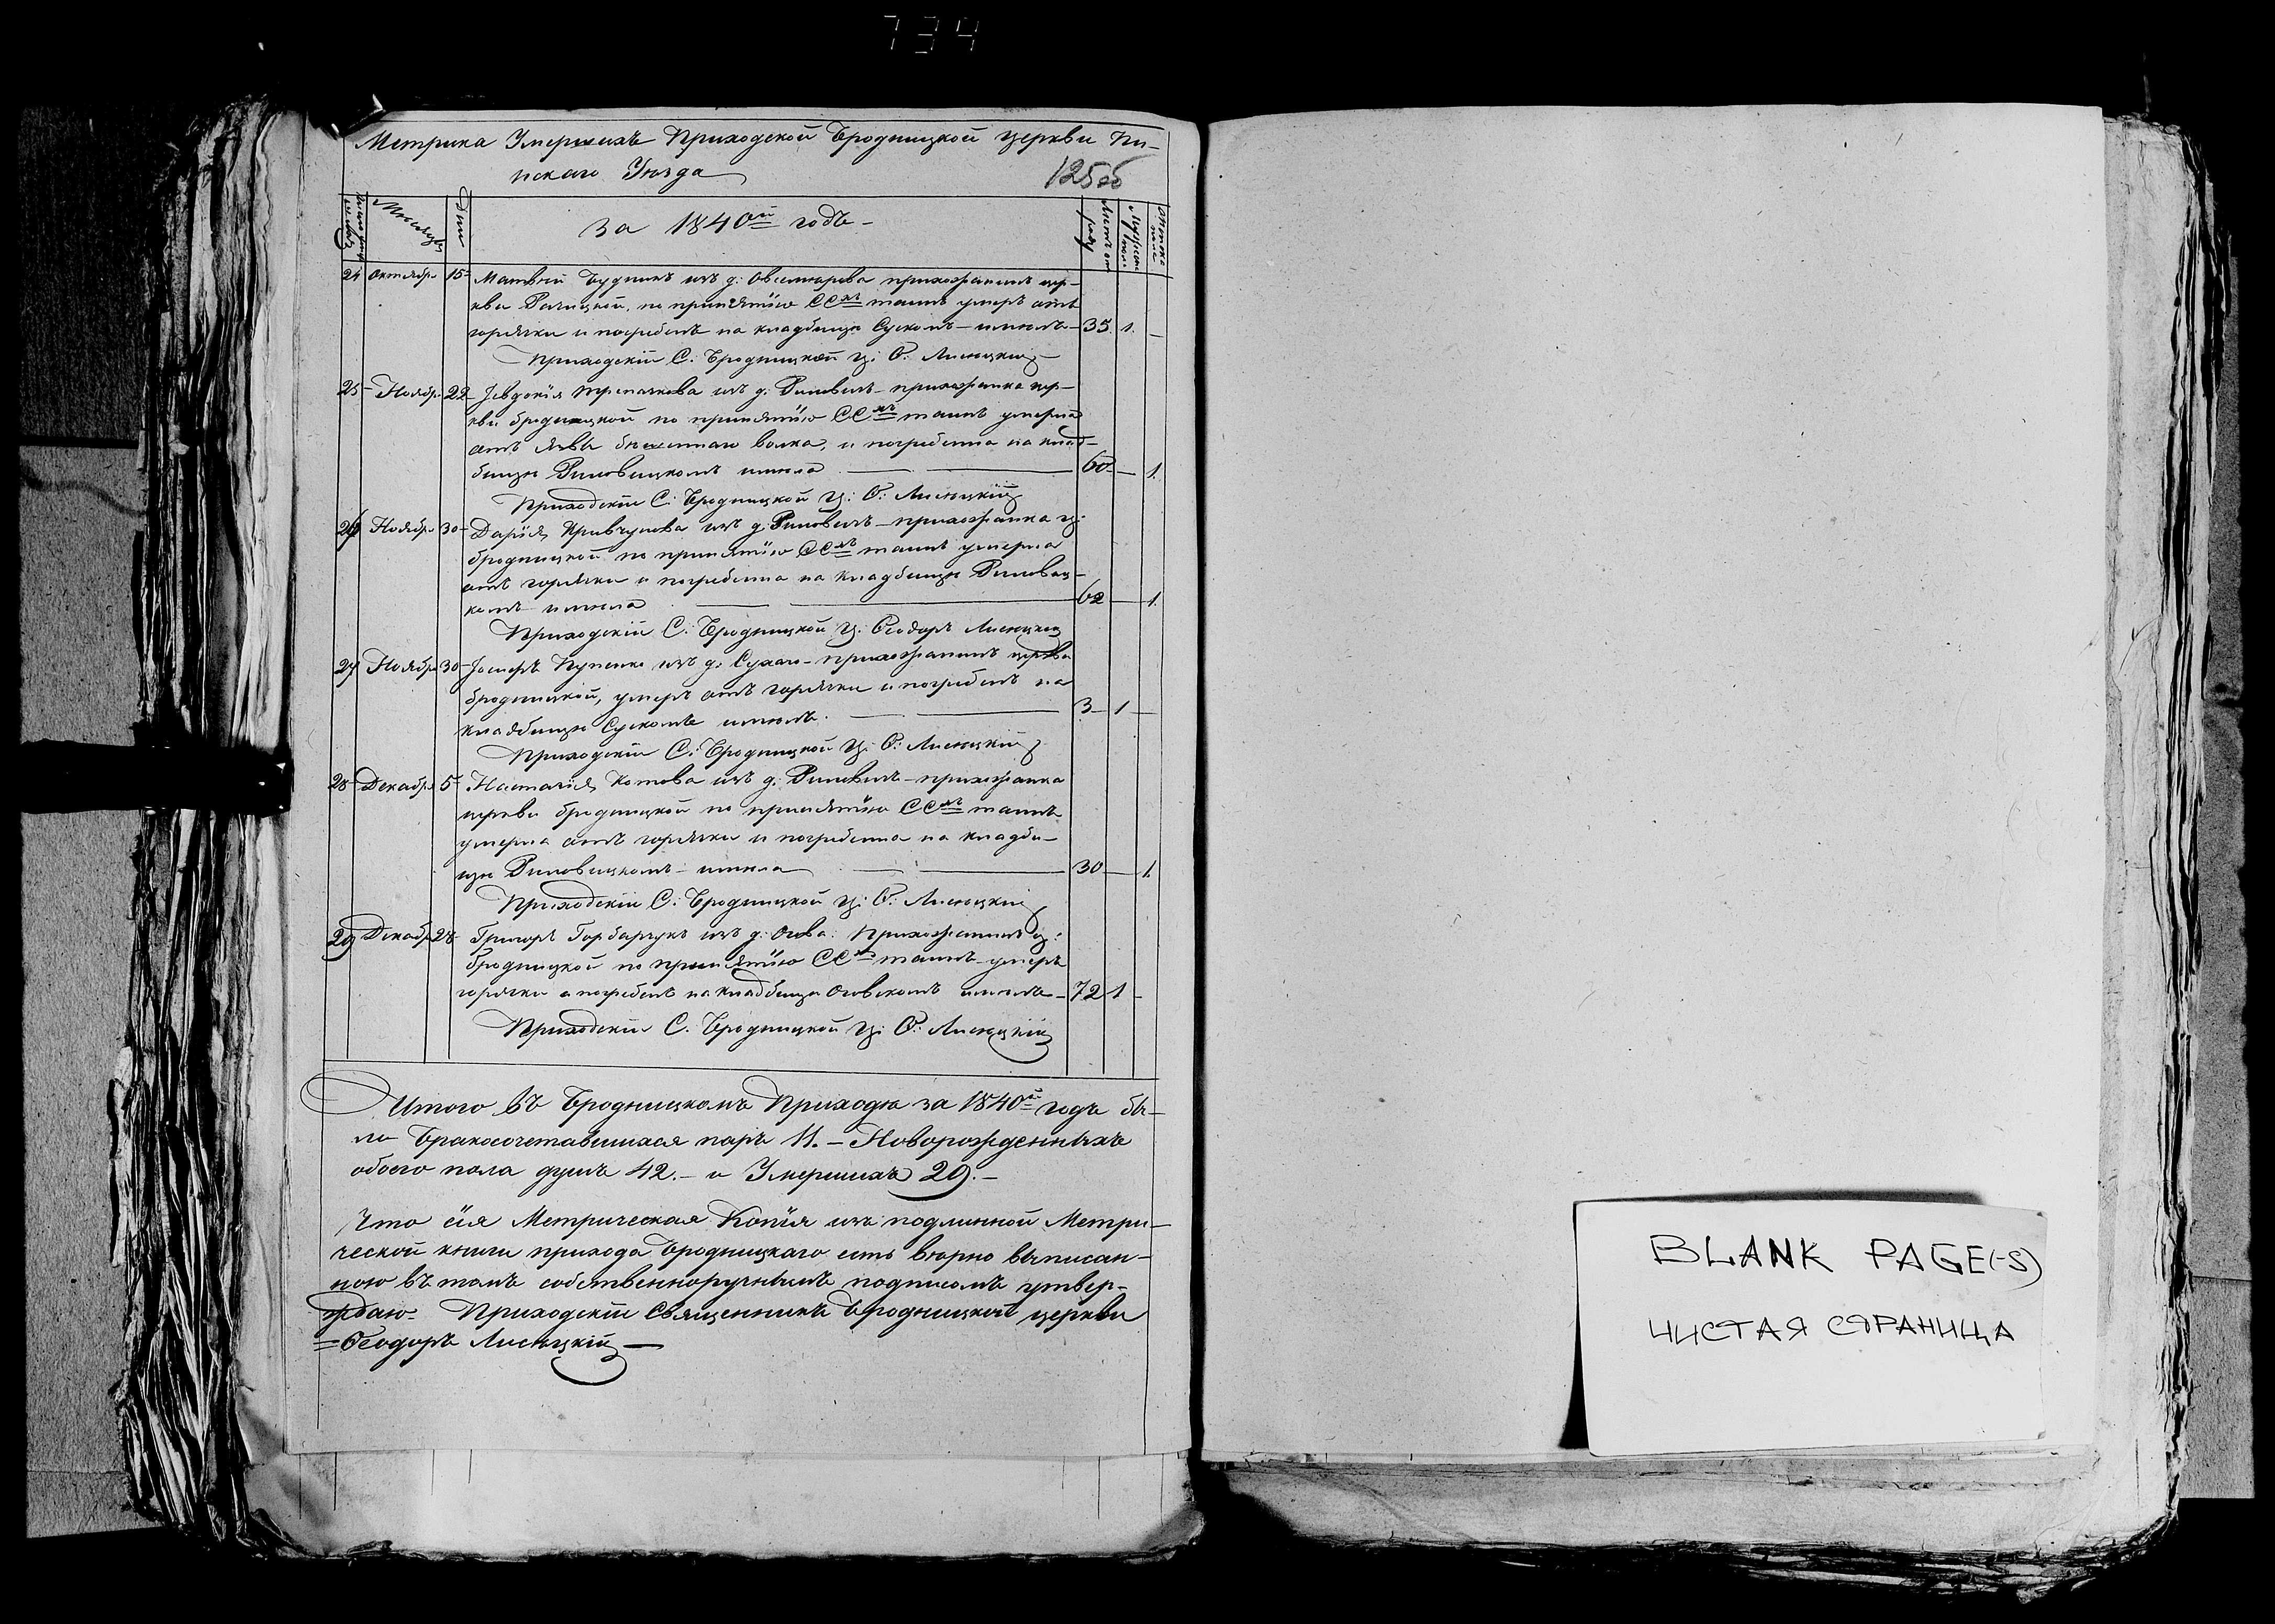 734
Метрика Умершихъ Приходской Бродницкой церкви Пи-
нскаго Уѣзда
125об
Мѣсяцъ
Дни
За 1840ой годъ -
24 Октября 15 Матвѣй Будникъ изъ д: Овсемирова прихожанинъ цер-
кви Рачицкой, по принятію ССхъ таинъ умеръ отъ
горячки и погребенъ на кладбищѣ Сускомъ - имѣлъ - 35. 1. -
Приходскій С. Бродницкой ц: Ѳ. Лисицкій
25 - Ноябр. 22 Іевдокія Трепачкова изъ д. Риловичъ - прихожанка цер-
кви бродницкой по принятію ССхъ таинъ умерла
отъ язвы бѣшеннаго волка, и погребенна на клад-
бищѣ Риловицкомъ имѣла 60 - 1.
Приходскій С. Бродницкой ц: Ѳ: Лисицкій
26 Ноябр. 30 - Дарія Кривчунова изъ д: Риловичъ - прихожанка ц:
бродницкой по принятію ССхъ таинъ умерла
отъ горячки и погребенна на кладбищѣ Риловиц-
комъ имѣла 62 - 1.
Приходскій С. Бродницкой ц. Ѳеодоръ Лисицкій
27 Ноября 30 - Іосифъ Пупенко изъ д. Сухаго - прихожанинъ церкви
бродницкой, умеръ отъ горячки и погребенъ на
кладбищѣ Сускомъ имѣлъ. 3 - 1 -
Приходскій С. Бродницкой ц: Ѳ: Лисицкій
28 Декабря 5 Настасія Котова изъ д. Риловичъ - прихожанка
церкви бродницкой по принятію ССхъ таинъ
умерла отъ горячки и погребенна на кладби-
щѣ Риловицкомъ - имѣла 30 - 1.
Приходскій С. Бродницкой ц: Ѳ: Лисицкій
29 Декабр 28 Григоръ Горбарчукъ изъ д: Огова. Прихожанинъ ц:
бродницкой по принятію ССхъ таинъ - умеръ
горячки и погребенъ на кладбищѣ Оговскомъ имѣлъ - 72 1 -
Приходскій С. Бродницкой ц: Ѳ: Лисицкій
Итого въ Бродницкомъ Приходѣ за 1840й годъ бы-
ло Бракосочетавшихся паръ 11. - Новорожденныхъ
обоего пола душъ 42. - и Умершихъ 29. -
Что сія Метрическая Копія изъ подлинной Метри-
ческой книги прихода Бродницкаго есть вѣрно выписан-
ною въ томъ собственноручнымъ подписомъ утвер-
ждаю - Приходскій Священникъ Бродницкой церкви
= Ѳеодоръ Лисицкій -
BLANK PAGE(-S)
ЧИСТАЯ СТРАНИЦА